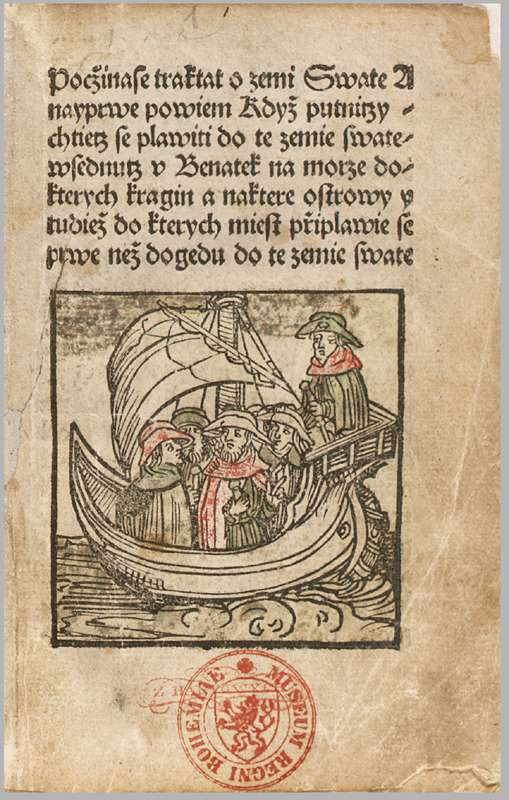 Počžinase traktat o zemi Swate A
nayprwe powiem Když putnitzy ⸗
chtietz se plawiti do te zemie swate⸗
wsednutz v Benatek na morze do⸗
kterych kragin a naktere ostrowy y
tudiež do kterych miest připlawie se
prwe než dogedu do te zemie swate
MUSEUM REGNI BOHEMIAE